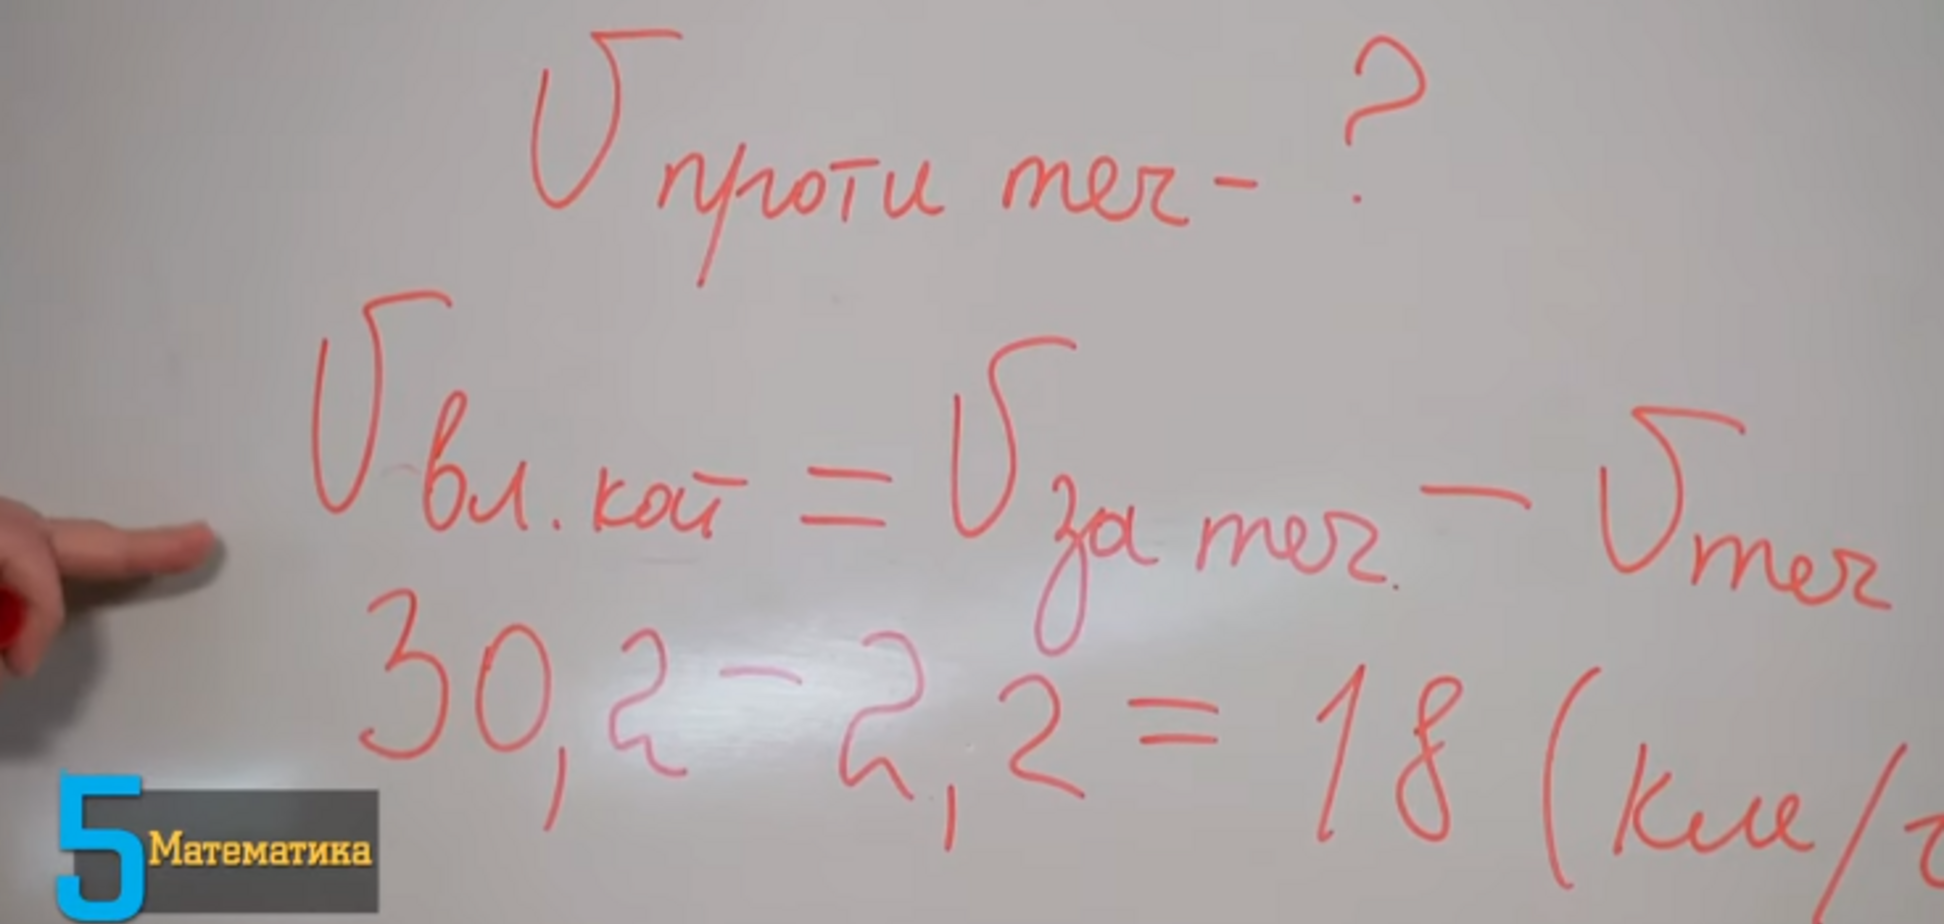 V проти теч - ?
V вл. кат = V за теч. - V теч
30,2 - 2,2 = 18 (км/
5 Математика